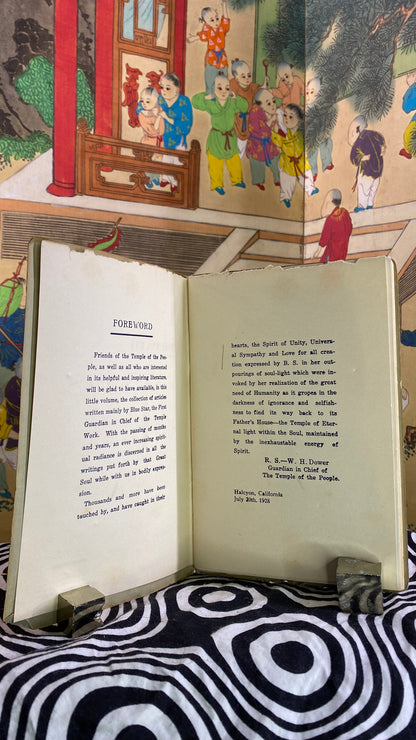 FOREWORD
Friends of the Temple of the Peo-
ple, as well as all who are interested
in its helpful and inspiring literature,
will be glad to have available, in this
little volume, the collection of articles
written mainly by Blue Star, the First
Guardian in Chief of the Temple
Work. With the passing of months
and years, an ever increasing spirit-
ual radiance is discerned in all the
writings put forth by that Great
Soul while with us in bodily expres-
sion.
Thousands and more have been
touched by, and have caught in their
hearts, the Spirit of Unity, Univers-
al Sympathy and Love for all cre-
ation expressed by B. S. in her out-
pourings of soul-light which were in-
voked by her realization of the great
need of Humanity as it gropes in the
darkness of ignorance and selfish-
ness to find its way back to its
Father's House—the Temple of Eter-
nal light within the Soul, maintained
by the inexhaustable energy of
Spirit.
R. S.—W. H. Dower
Guardian in Chief of
The Temple of the People.
Halcyon, California
July 20th, 1928